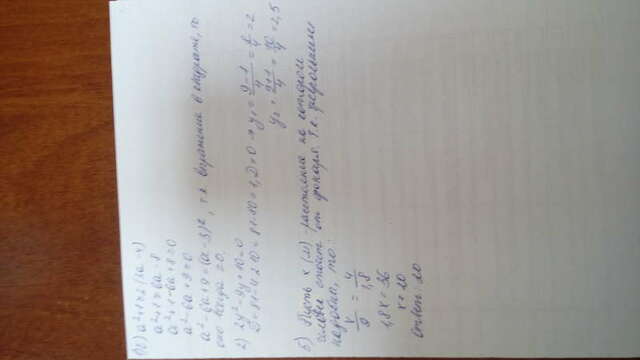 1б) a²+1 ≥ 2(3a-4)
a²+1 ≥ 6a-8
a²+1-6a+8≥0
a²-6a+9≥0
a²-6a+9=(a-3)², т.к. выражение в квадрате, то
оно всегда ≥0.
2) 2y²-9y+10=0
D=81-4·2·10=81-80=1, D>0 → y₁=(9-1)/4=8/4=2
y₂=(9+1)/4=10/4=2,5
5) Пусть x (м) - расстояние на котором
человек стоит от фонаря. Т.к. треугольники
подобны, то:
x/9 = 4/1,8
1,8x=36
x=20
ответ: 20